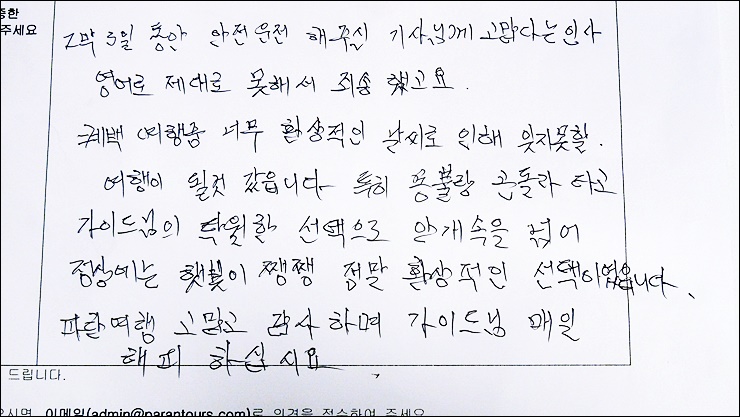 중한
주세요
2박 3일 동안 안전운전 해주신 기사님께 고맙다는 인사
영어로 제대로 못해서 죄송했고요.
퀘백 여행중 너무 환상적인 날씨로 인해 잊지못할.
여행이 될것 같습니다 특히 몽블랑 곤돌라 타고
가이드님의 탁월한 선택으로 안개속을 넘어
정상에는 햇빛이 쨍쨍 정말 환상적인 선택이였읍니다.
파란여행 고맙고 감사하며 가이드님 매일
해피 하십시요
드립니다.
으시면, 이메일(admin@parantours.com)로 의견을 접수하여 주세요